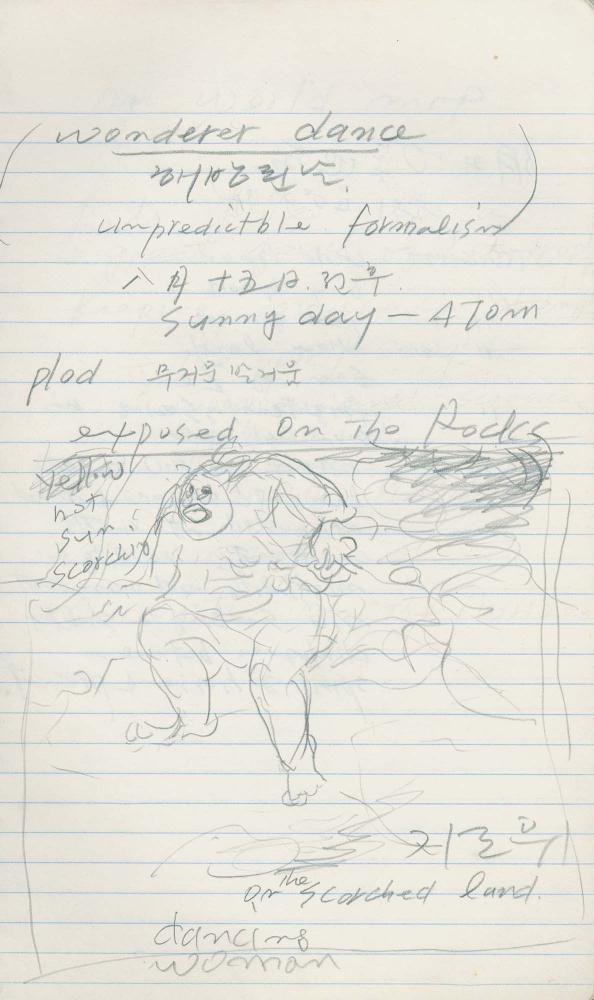 wonderer dance
해방된 날.
unpredictble formalism
八月 十五日.
sunny day — ATom
plod 무거운
exposed on The Rocks
yellow
hot
sun!
scorching
on The scorched land.
dancing
woman